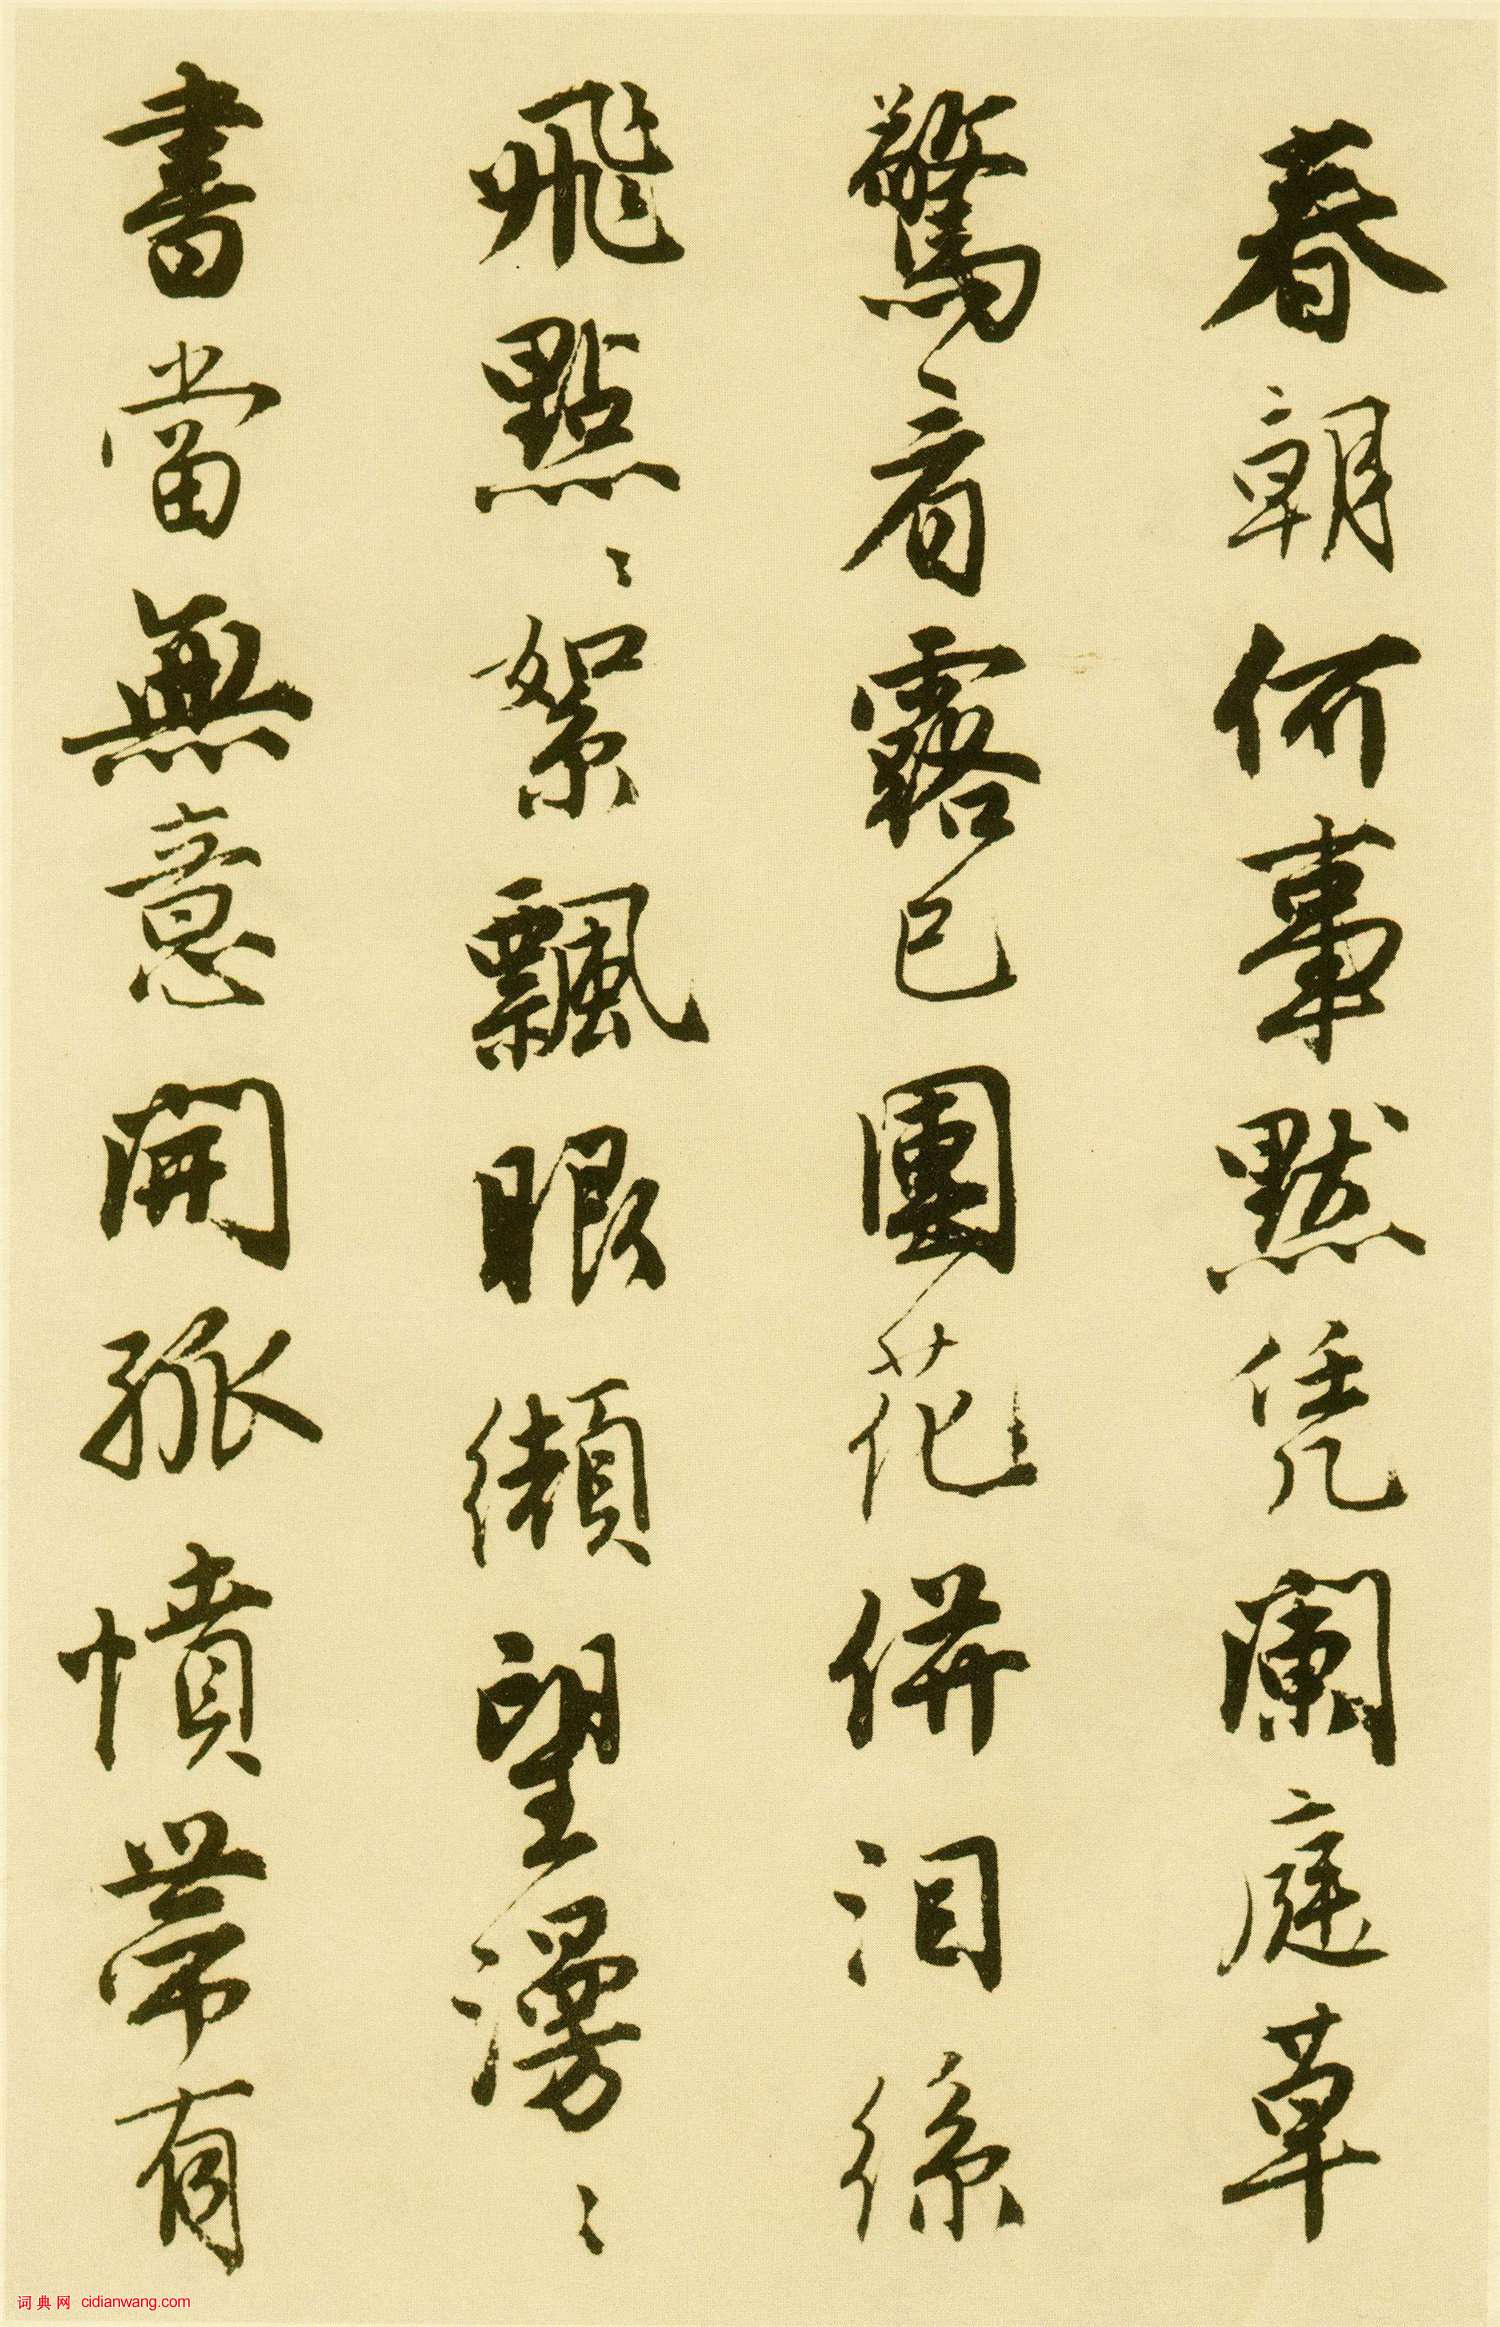 春朝何事默凭闌庭草
驚看露已團花併淚係
飛點〻絮飄眼纈望漫〻
書當無意開孤憤帶有
词典网 cidianwang.com